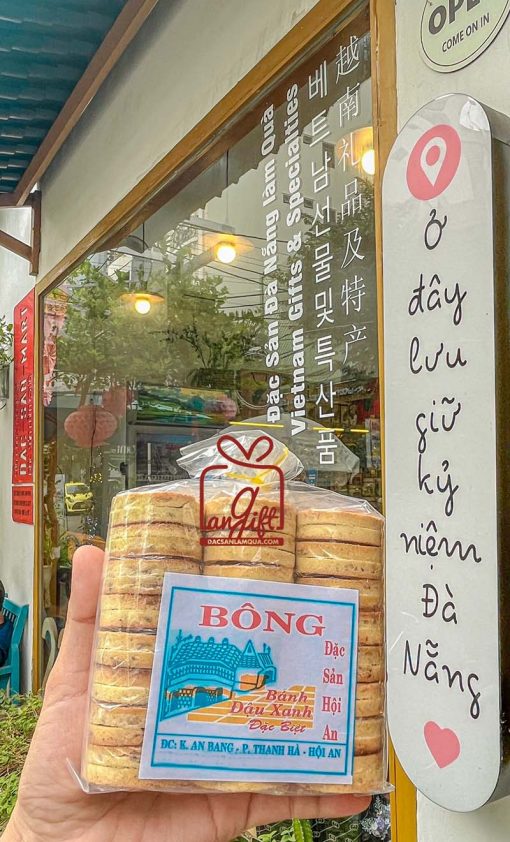 OPEN
COME ON IN
越南礼品及特产
베트남 선물 및 특산품
Vietnam Gifts & Specialties
Đặc Sản Đà Nẵng làm Quà
ở
đây
lưu
giữ
kỷ
niệm
Đà
Nẵng
angift
DACSANLAMQUA.COM
BÔNG
Đặc
Sản
Hội
An
Bánh
Dâu Xanh
Đặc Biệt
ĐC: K. AN BANG - P. THANH HÀ - HỘI AN